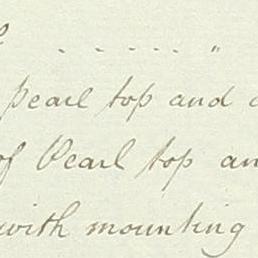 . . . . . . "
pearl top and
of Pearl top an
with mounting